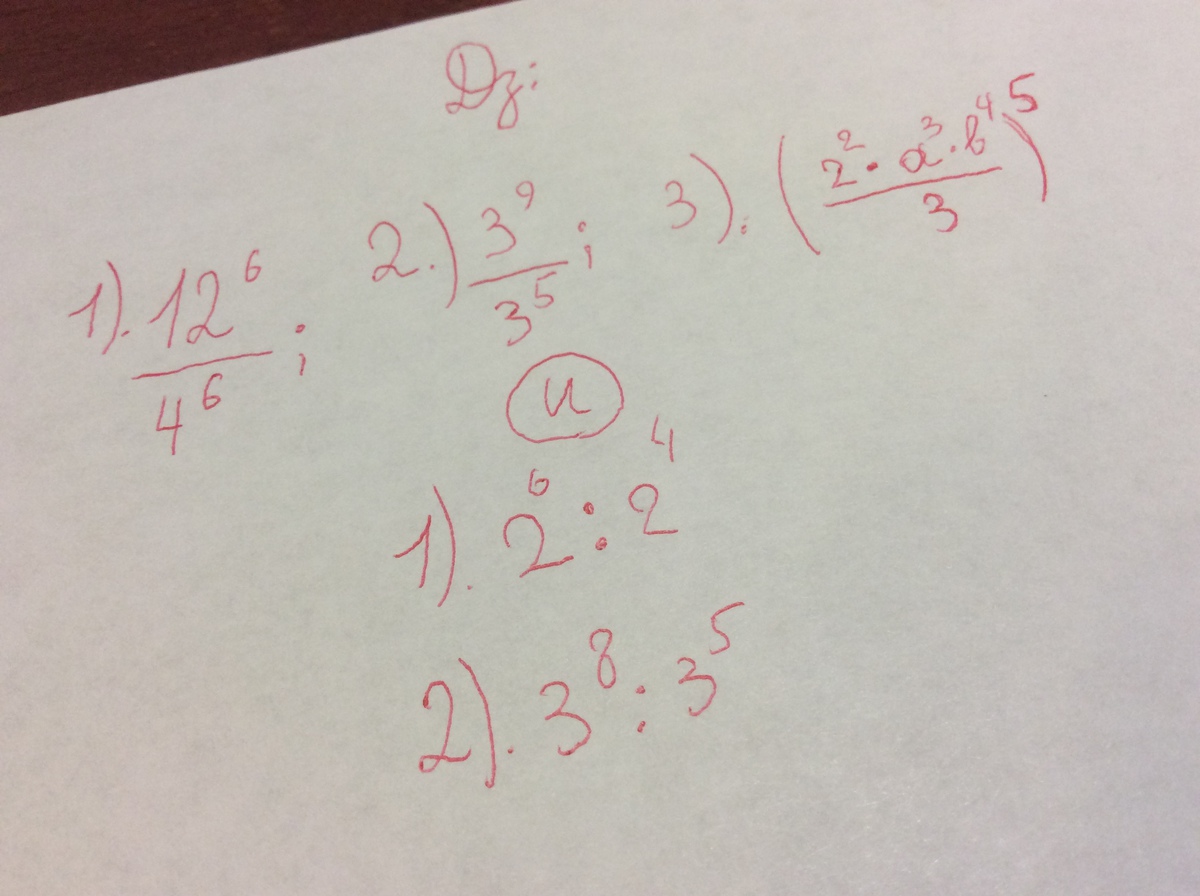 Dz:
1). 12⁶/4⁶ ; 2.) 3⁹/3⁵ ; 3). (2² · a³ · b⁴/3)⁵
и
1). 2⁶ : 2⁴
2). 3⁸ : 3⁵